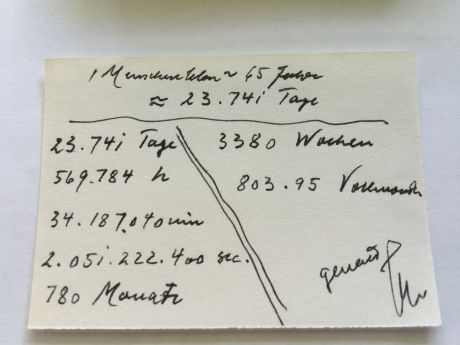 1 Menschenleben ~ 65 Jahre
≈ 23.741 Tage
23.741 Tage
569.784 h
34.187.040 min
2.051.222.400 sec.
780 Monate
3380 Wochen
803.95 Vollmonde